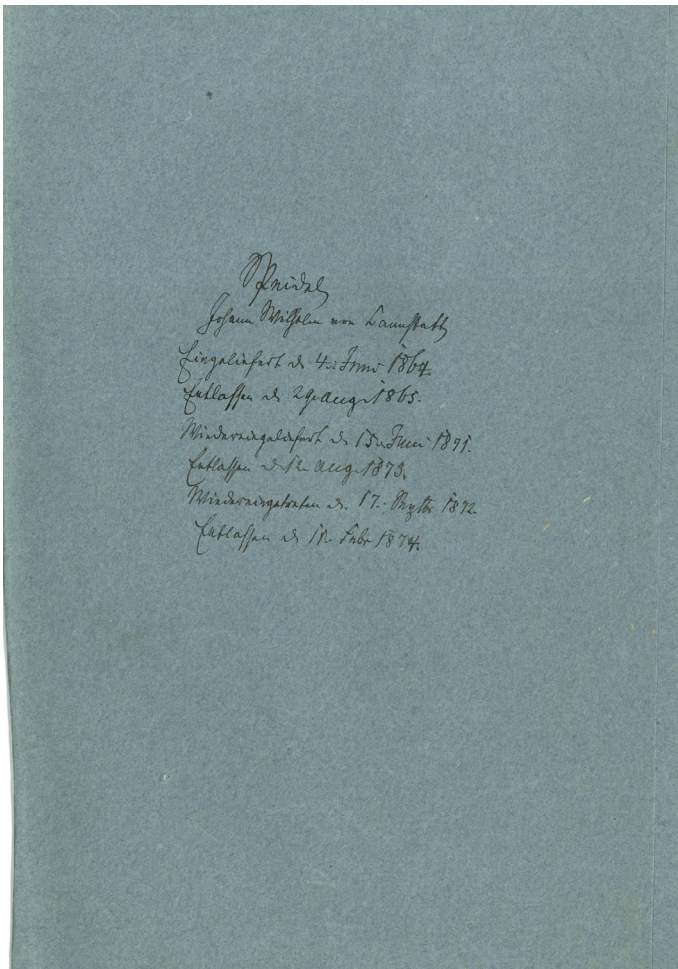 Speidel
Johann Wilhelm von Cannstatt
Eingeliefert d. 4. Juni 1864.
Entlassen d. 29. Aug. 1865.
Wiedereingeliefert d. 15. Juni 1871.
Entlassen d. 12. Aug. 1873.
Wiedereingetreten d. 17. Septbr 1872.
Entlassen d. Febr 1874.